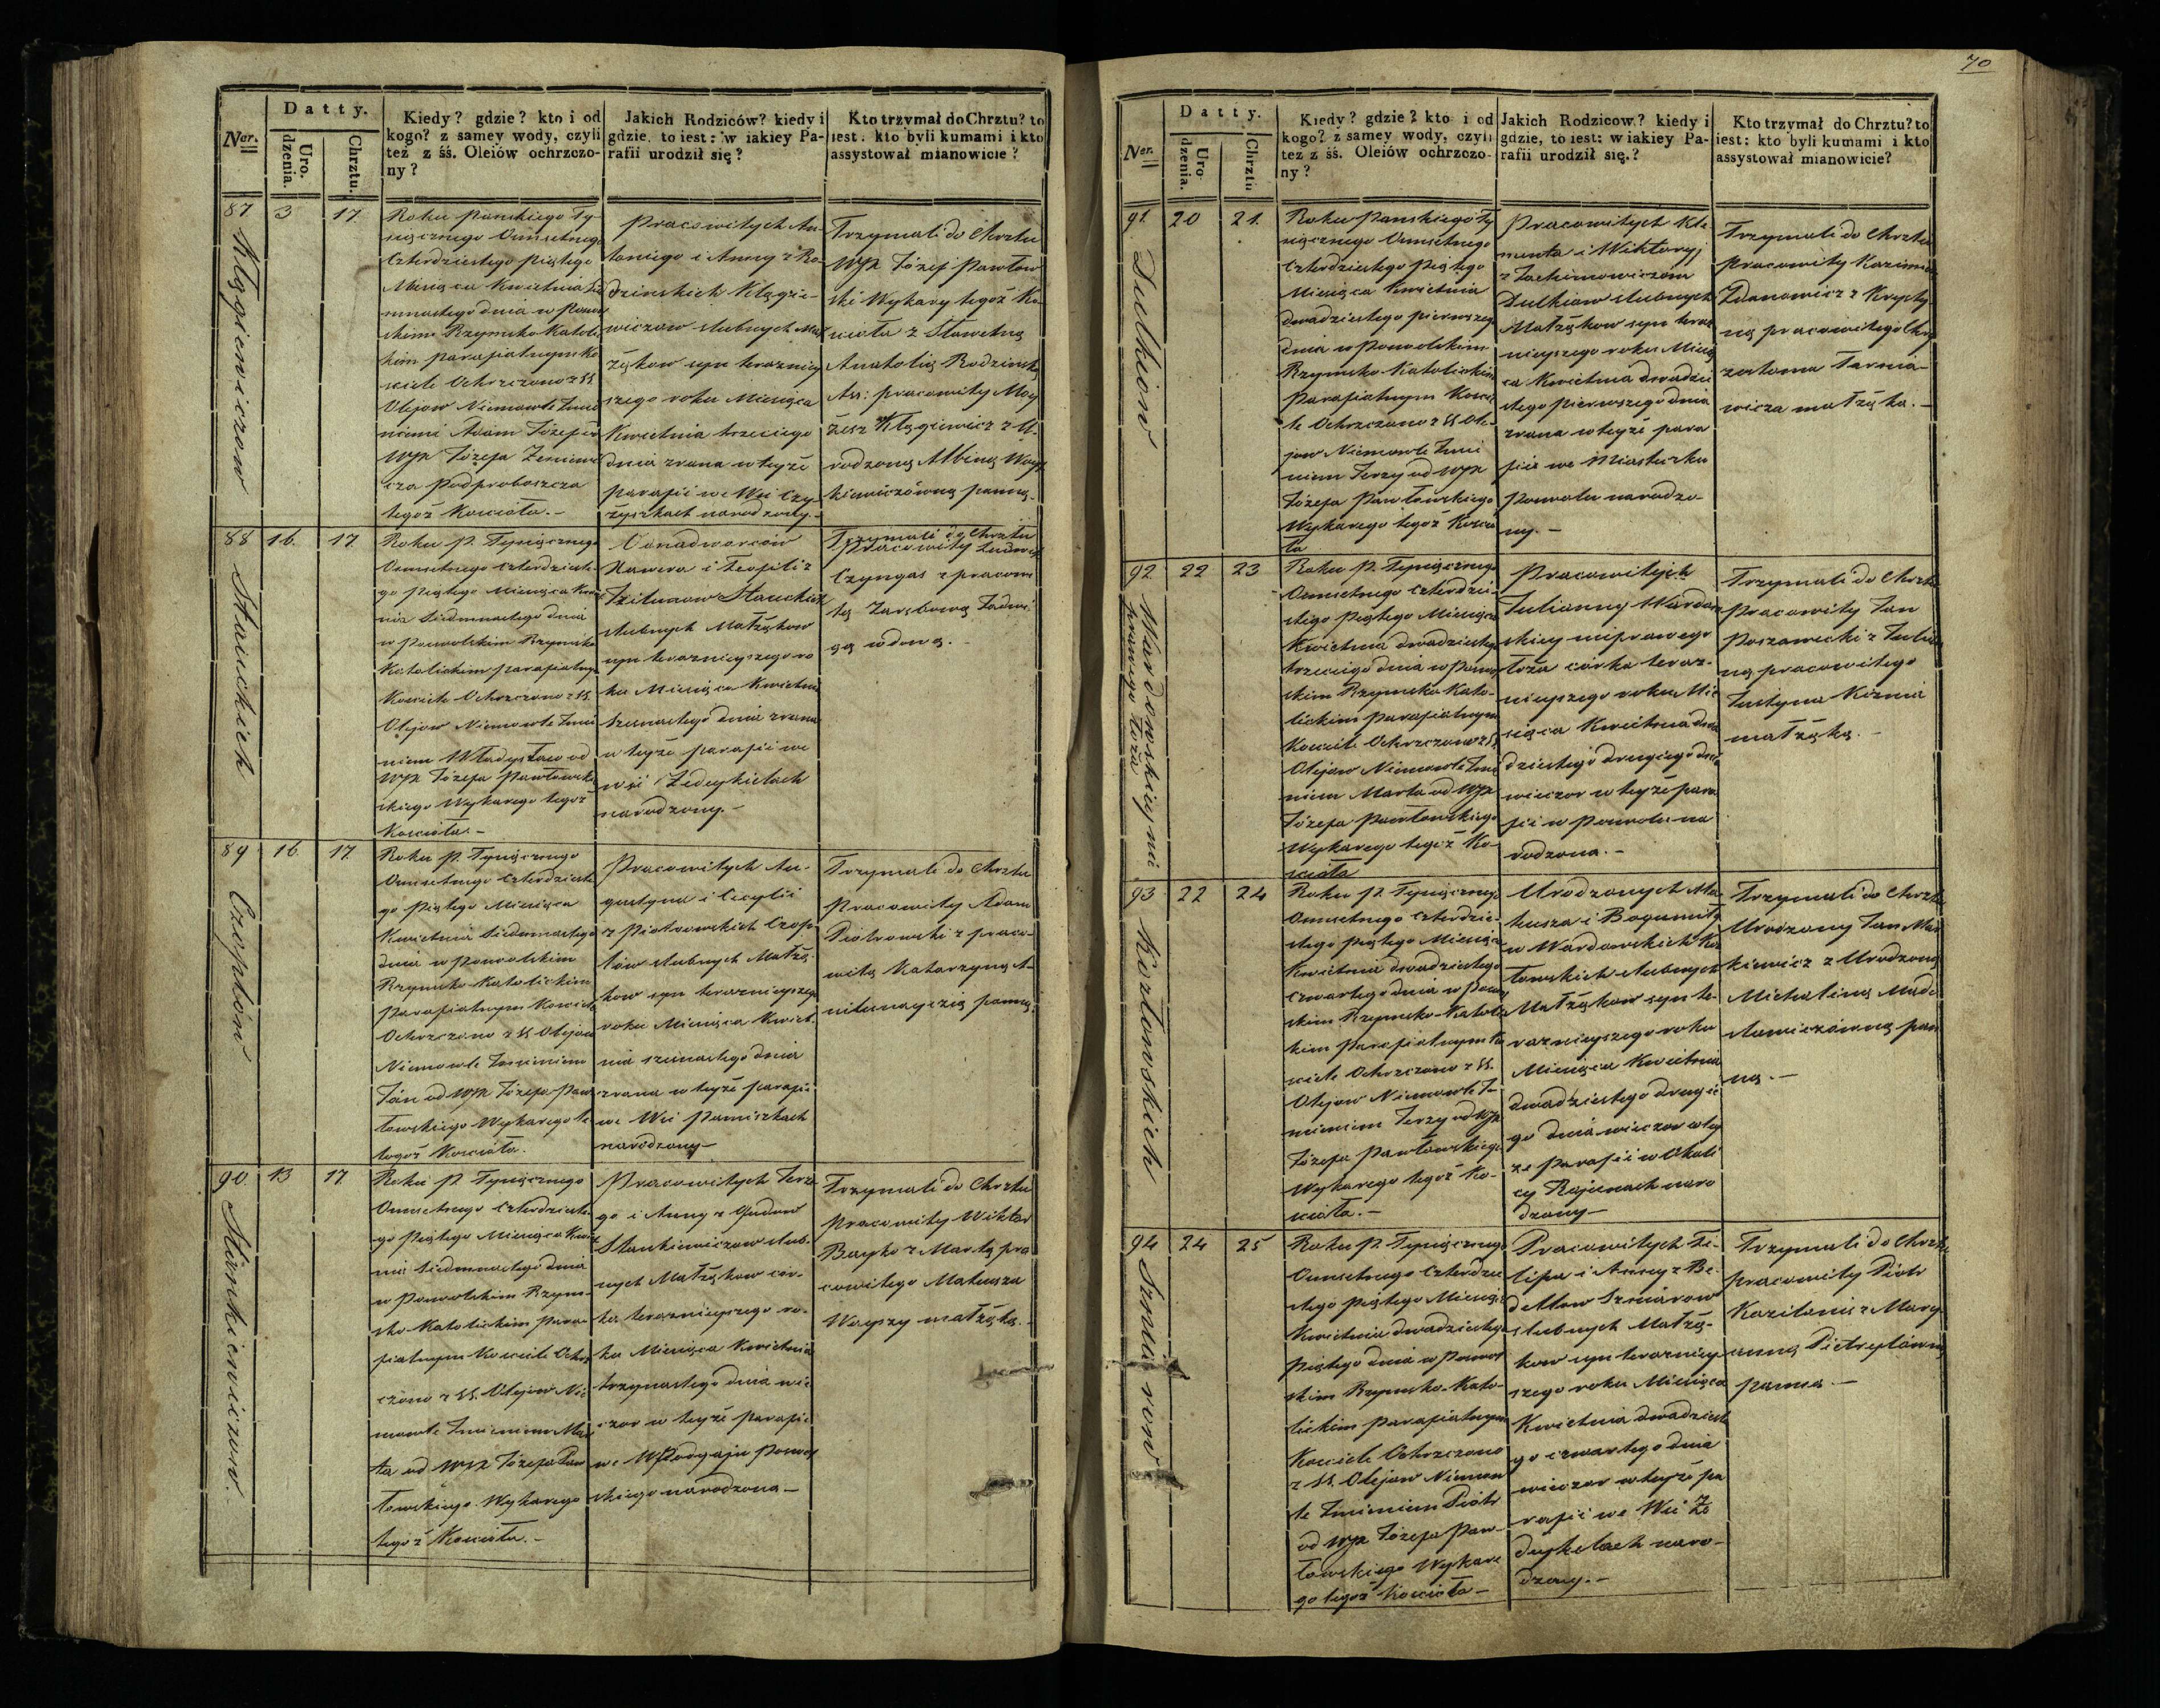 Ner.
Datty.
Uro.
dzenia.
Chrztu.
Kiedy? gdzie? kto i od
kogo? z samey wody, czyli
też z śś. Oleiów ochrzczo-
ny?
Jakich Rodziców? kiedy i
gdzie, to iest: w iakiey Pa-
rafii urodził się?
Kto trzymał do Chrztu? to
iest. kto byli kumami i kto
assystował mianowicie?
87
3
17.
Roku Panskiego Ty-
siącznego Osmsetnego
Czterdziestego piątego
Miesiąca Kwietnia
mnastego dnia w
skim Rzymsko Katoli
kim parafialnym Ko
sciele Ochrzczono z SS.
Olejow Niemowle Imie
niem Adam Józef od
WJX Józefa
cza Podproboszcza
tegoż Kosciola.-
Pracowitych An-
toniego i Anny z Ro-
dzinskich
wiczow slubnych Mał
żąkow syn terazniey
szego roku Miesiąca
Kwietnia trzeciego
dnia zrana w teyże
parafii we Wsi Czy-
żyszkach narodzony.-
Trzymali do Chrztu
WJX Józef Pawłow
ski Wykary tegoż Ko
sciola z Sławetną
Anatolią Rodzinsk
Ass: pracowity Moy
żesz z U-
rodzoną Albiną
panną.
88
16.
17
Stauckich
Roku P. Tysiącznego
Osmsetnego Czterdzieste
go piątego Miesiąca Kwie
nia Siedmnastego dnia
w Ponwolskim Rzymsko
Katolickim parafialnym
Kosciele Ochrzczono z SS.
Olejow Niemowle Imie
niem Władysław od
WJX Józefa Pawłow
skiego Wykarego tegoż
Kosciola.-
Xawera i Teofili z
Stauckich
slubnych Małżąkow
syn terazniejszego ro
ku Miesiąca Kwietnia
Szesnastego dnia zrana
w teyże parafii we
wsi
narodzony.-
Trzymali do Chrztu
Pracowity Ludwik
Czyngas z pracowi
tą Jadwi
gą wdową.
89
16
17
Czopłow
Roku P. Tysiącznego
Osmsetnego Czterdzieste
go piątego Miesiąca
Kwietnia Siedmnastego
dnia w Ponwolskim
Rzymsko Katolickim
parafialnym Kosciele
Ochrzczono z SS Olejow
Niemowle Imieniem
Jan od WJX Józefa Paw
łowskiego Wykarego te
tegoż Kosciola.
Pracowitych Au-
gustyna i Cecylii
z Piotrowskich Czop
łow slubnych Małżą
kow syn terazniejszego
roku Miesiąca Kwiet-
nia szesnastego dnia
zrana w teyże parafii
we Wsi
narodzony-
Trzymali do Chrztu
Pracowity Adam
Piotrowski z praco-
witą Katarzyną
panną
90
13
17
Stankiewiczow.
Roku P. Tysiącznego
Osmsetnego Czterdzieste
go piątego Miesiąca Kwie
nia Siedmnastego dnia
w Ponwolskim Rzym-
sko Katolickim para-
fialnym Kosciele Ochrz
czono z SS. Olejow Nie
mowle Imieniem Mar
ta od WJX Józefa Paw
łowskiego Wykarego
tegoż Kosciola.-
Pracowitych Jerze
go i Anny z Gudow
Stankiewiczow slub-
nych Małżąkow cór-
ka terazniejszego ro-
ku Miesiąca Kwietnia
trzynastego dnia wie
czor w teyże parafii
skiego narodzona-
Trzymali do Chrztu
Pracowity Wiktor
z Martą pra
cowitego Mateusza
małżąką.
70
Ner.
Datty.
Uro
dzenia.
Chrztu
Kiedy? gdzie? kto i od
kogo? z samey wody, czyli
tez z śś. Oleiów ochrzczo-
ny?
Jakich Rodzicow? kiedy i
gdzie, to iest: w iakiey Pa-
rafii urodził się.?
Kto trzymał do Chrztu? to
iest: kto byli kumami i kto
assystował mianowicie?
91
20
21.
Dulkiow
Roku Panskiego Ty
siącznego Osmsetnego
Czterdziestego piątego
Miesiąca Kwietnia
dwadziestego pierwszego
dnia w Ponwolskim
Rzymsko-Katolickim
Parafialnym Kosci
le Ochrzczono z SS Ole-
jow Niemowle Imie
niem Jerzy od WJX
Józefa Pawłowskiego
Wykarego tegoż Kościo
ła
Pracowitych Kle
menta i Wiktoryj
z Jachimowiczow
Dulkiow slubnych
Małżąkow syn teraz
nieyszego roku Miesią
ca Kwietnia dwadzie
stego pierwszego dnia
zrana w teyże para
fii we Miasteczku
narodzo-
ny.-
Trzymali do Chrztu
pracowity Kazimie
Zdanowicz z Krysty
ną pracowitego Chry
zostoma
wicza małżąka.-
92
22
23
Wardowskiey nie
prawego łoża
Roku P. Tysiącznego
Osmsetnego Czterdzie-
stego Piątego Miesiąca
Kwietnia dwadziestego
trzeciego dnia w
skim Rzymsko Kato-
lickim parafialnym
Kosciele Ochrzczono z SS.
Olejow Niemowle Imie
niem Marta od WJX
Józefa Pawłowskiego
Wykarego tegoż Ko-
sciola
Pracowitych
Julianny Wardow
skiey nieprawego
łoża córka teraz-
nieyszego roku Mie
siąca Kwietnia dwa
dziestego drugiego dnia
wieczor w teyże para
fii w na
rodzona.-
Trzymali do Chrztu
pracowity Jan
z
ną pracowitego
Justyna
małżąką.-
93
22
24
Kozłowskich
Roku P. Tysiącznego
Osmsetnego Czterdzie-
stego piątego Miesiąca
Kwietnia dwadziestego
Czwartego dnia w
skim Rzymsko-Katolic
kim Parafialnym Ko
sciele Ochrzczono z SS.
Olejow Niemowle I-
mieniem Jerzy od WJX
Józefa Pawłowskiego
Wykarego tegoż Ko-
sciola.-
Urodzonych Ma-
teusza i Bogumiły
w Wardowskich Ko
złowskich slubnych
Małżąkow syn te-
raznieyszego roku
Miesiąca Kwietnia
dwadziestego drugie
go dnia wieczor w tey
że parafii w Okoli
cy naro
dzony-
Trzymali do Chrztu
Urodzony Jan
kiewicz z Urodzoną
Michaliną
pan
ną.-
94
24
25
Roku P. Tysiącznego
Osmsetnego Czterdzie
stego piątego Miesiąca
Kwietnia dwadziestego
piątego dnia w
skim Rzymsko-Kato-
lickim parafialnym
Kosciele Ochrzczono
z SS. Olejow Niemow
le Imieniem Piotr
od WJX Józefa Paw-
łowskiego Wykare
go tegoż Kosciola-
Pracowitych Fi-
lipa i Anny z Be-
slubnych Małżą-
kow syn terazniey
szego roku Miesiąca
Kwietnia dwadzieste
go czwartego dnia
wieczor w teyże pa
rafii we Wsi
naro-
dzony.-
Trzymali do Chrztu
pracowity Piotr
z Mary-
anną
panną.-